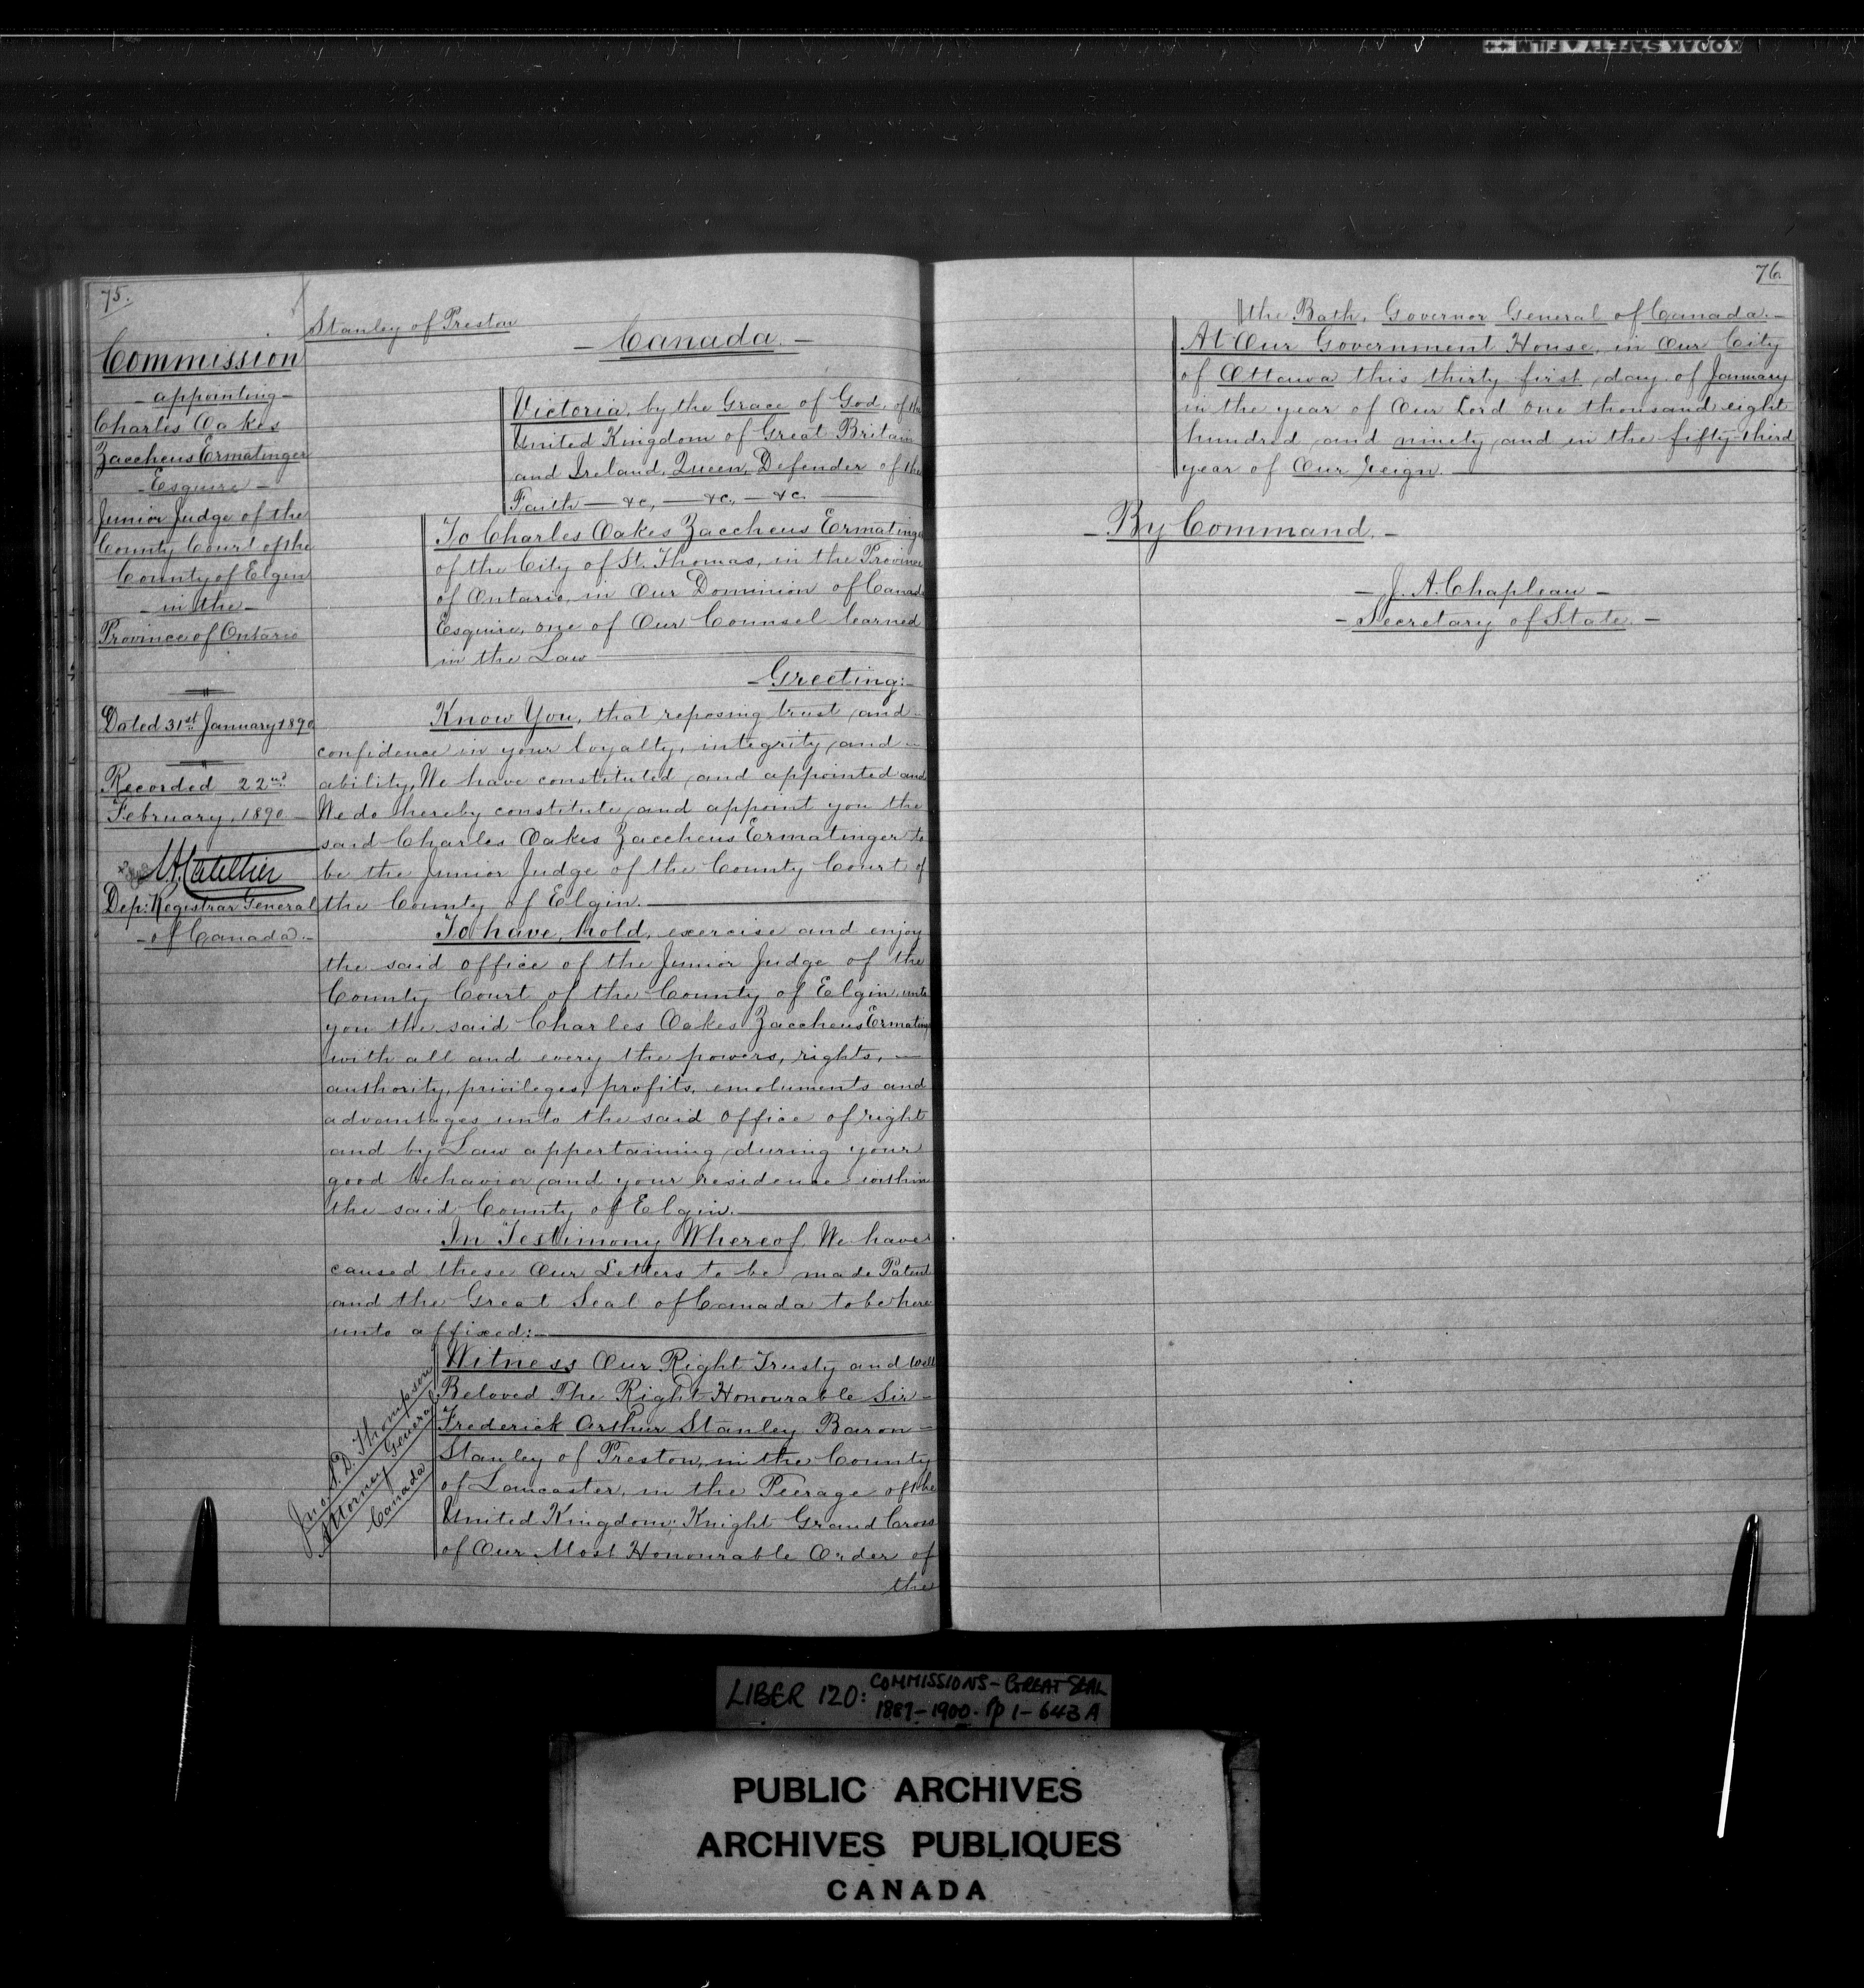 KODAK SAFETY A FILM ++
75.
Commission
- appointing -
Charles Oakes
Zaccheus Ermatinger
- Esquire -
Junior Judge of the
County Court of the
County of Elgin
- in the -
Province of Ontario
Dated 31st January 1890
Recorded 22nd
February, 1890
Dep: Registrar General
- of Canada. -
Stanley of Preston
- Canada. -
Victoria, by the Grace of God, of the
United Kingdom of Great Britain
and Ireland, Queen, Defender of the
Faith — &c, — &c, — &c.
To Charles Oakes Zaccheus Ermatinge
of the City of St. Thomas, in the Province
of Ontario, in Our Dominion of Canada
Esquire, one of Our Counsel learned
in the Law
- Greeting: -
Know You, that reposing trust and
confidence in your loyalty, integrity and
ability, We have constituted and appointed and
We do hereby constitute and appoint you the
said Charles Oakes Zaccheus Ermatinger to
be the Junior Judge of the County Court of
the County of Elgin.
To have, hold, exercise and enjoy
the said office of the Junior Judge of the
County Court of the County of Elgin unto
you the said Charles Oakes Zaccheus Ermating
with all and every the powers, rights, —
authority, privileges, profits, emoluments and
advantages unto the said office of right
and by Law appertaining, during your
good behavior, and your residence within
the said County of Elgin.
In Testimony Whereof, We have
caused these Our Letters to be made Patent
and the Great Seal of Canada to be here
unto affixed: —
Witness Our Right Trusty and Well
Beloved The Right Honourable Sir -
Frederick Arthur Stanley Baron -
Stanley of Preston, in the County
of Lancaster, in the Peerage of the
United Kingdom; Knight Grand Cross
of Our Most Honourable Order of
the
Jno. S. D. Thompson
Attorney General
Canada
76.
the Bath, Governor General of Canada. -
At Our Government House, in Our City
of Ottawa this thirty first day of January
in the year of Our Lord one thousand eight
hundred and ninety and in the fifty third
year of Our Reign.
- By Command. -
- J. A. Chapleau -
- Secretary of State. -
LIBER 120: COMMISSIONS - GREAT SEAL
1887-1900. pp 1-643A
PUBLIC ARCHIVES
ARCHIVES PUBLIQUES
CANADA